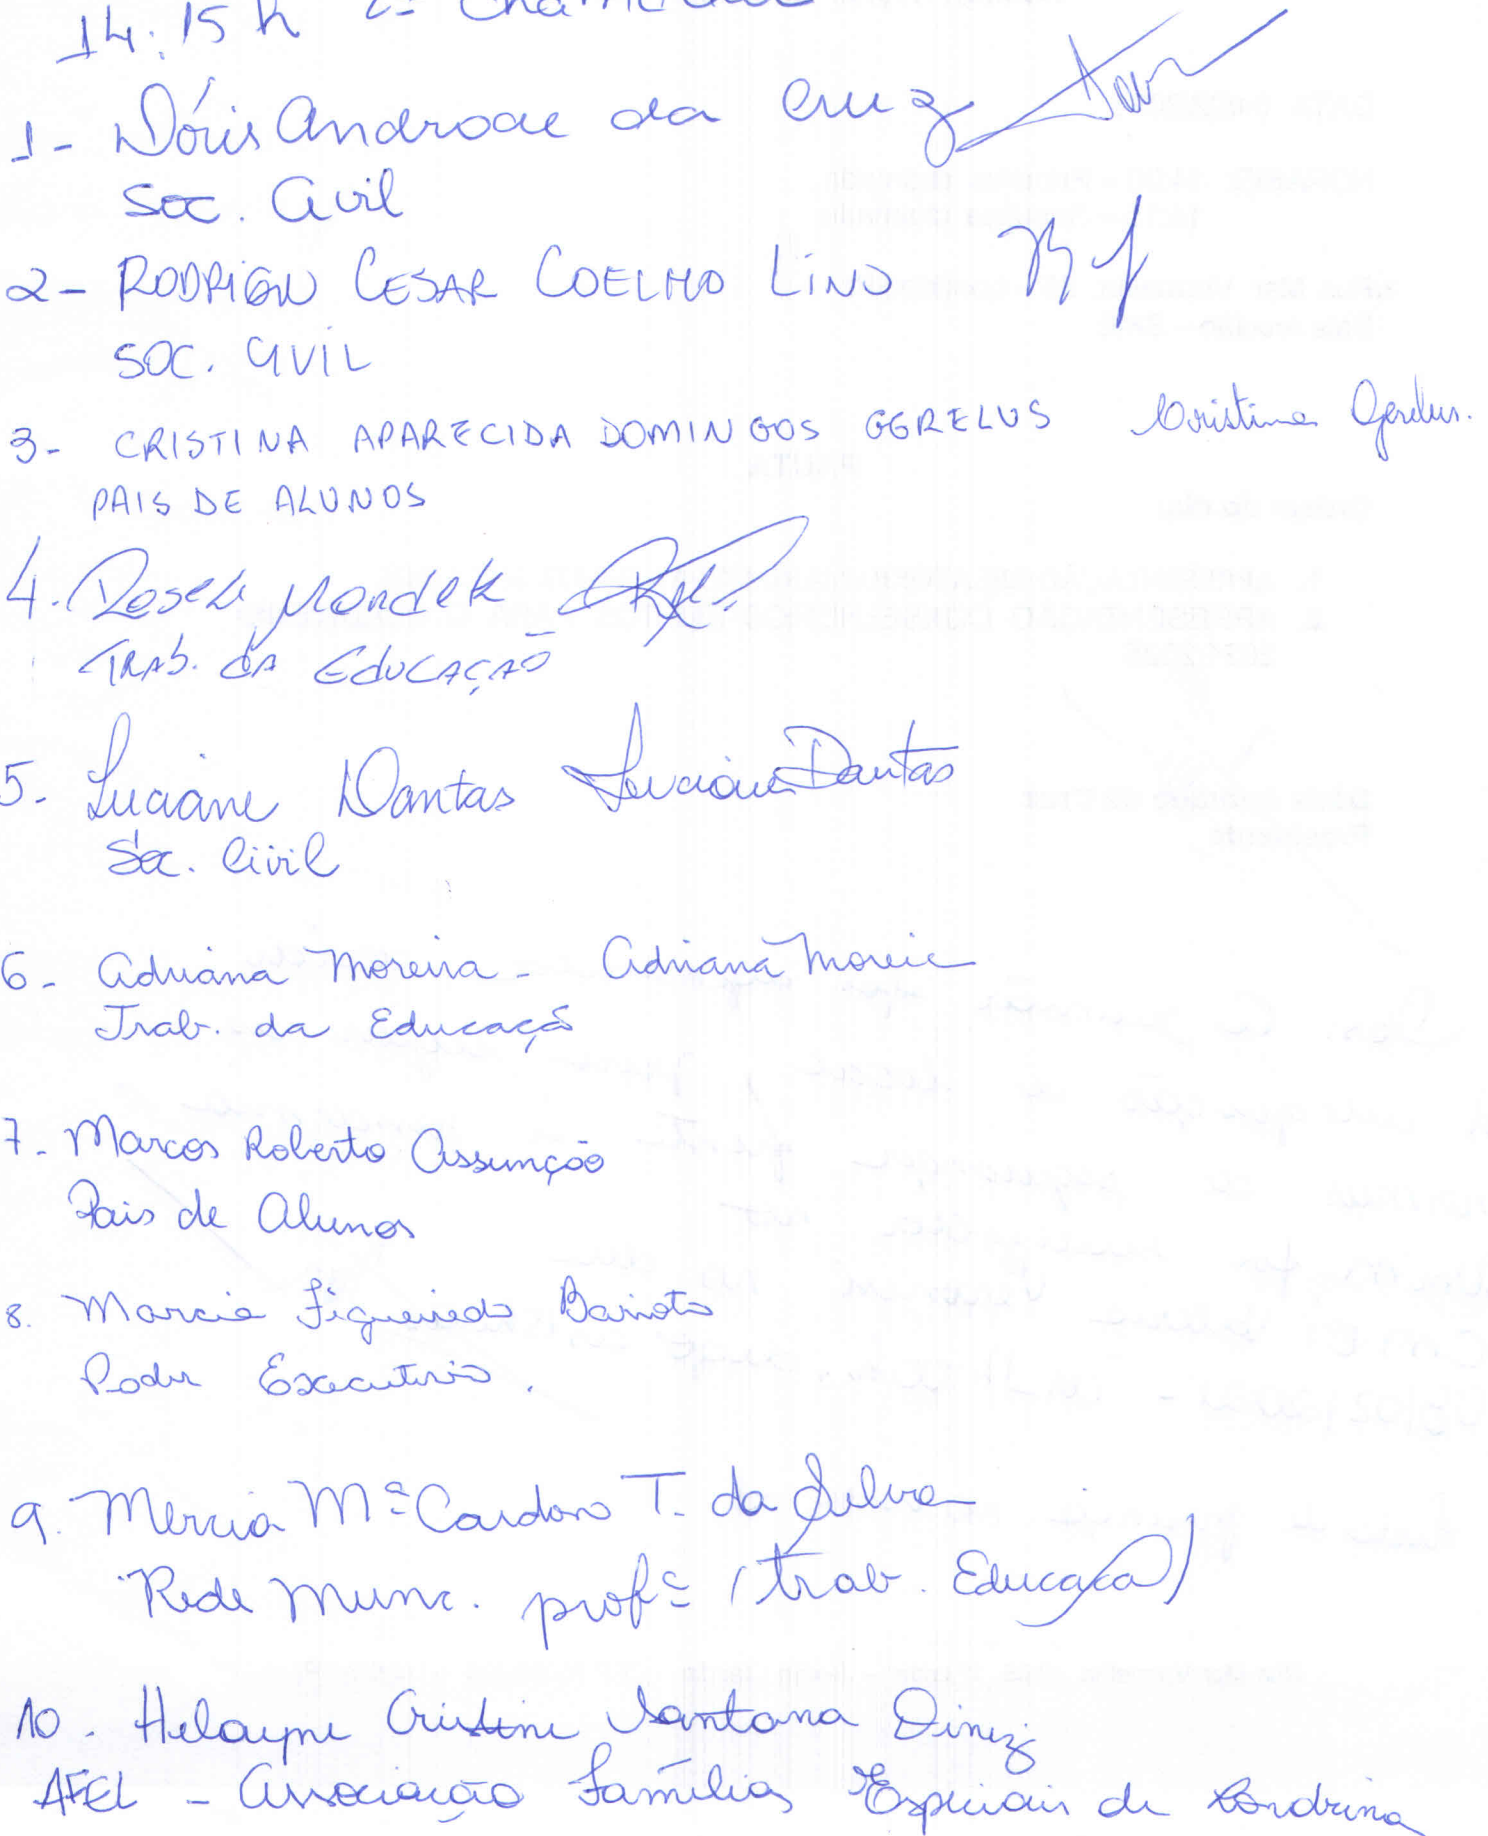 14:15 h 2ª Chamada
1- Dóris Andrade da Cruz
Soc. Civil
2- RODRIGO CESAR COELHO LINO
SOC. CIVIL
3- CRISTINA APARECIDA DOMINGOS GERELUS Cristina Gerelus.
PAIS DE ALUNOS
4. Roseli Mondek
TRAB. DA EDUCAÇÃO
5. Luciane Dantas Luciane Dantas
Soc. Civil
6- Adriana Moreira - Adriana Moreira
Trab. da Educação
7- Marcos Roberto Assunção
Pais de Alunos
8. Marcia Figueiredo Barioto
Poder Executivo.
9. Mercia Mª Cardoso T. da Silva
Rede Munc. profª (trab. Educação)
10. Helayne Cristine Santana Diniz
AFEL - Associação Famílias Especiais de Londrina